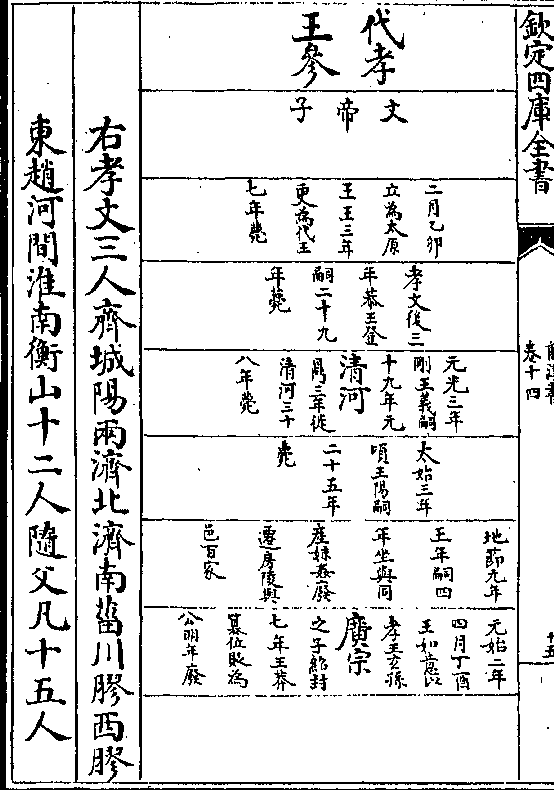 欽定四庫全書
卷十四
代孝
王參
文
帝
子
二月乙卯
立為太原
王王三年
更為代王
七年薨
孝文後三
年恭王登
嗣二十九
年薨
元光三年
剛王義嗣
十九年元
清河
鼎三年徙
清河三十
八年薨
太始三年
頃王陽嗣
二十五年
薨
地節元年
王年嗣四
年坐與同
產妹姦廢
遷房陵與
邑百家
元始二年
四月丁酉
王如意以
孝王玄孫
廣宗
之子紹封
七年王莽
簒位貶為
公明年廢
右孝文三人齊城陽兩濟北濟南菑川膠西膠
東趙河間淮南衡山十二人隨父凡十五人